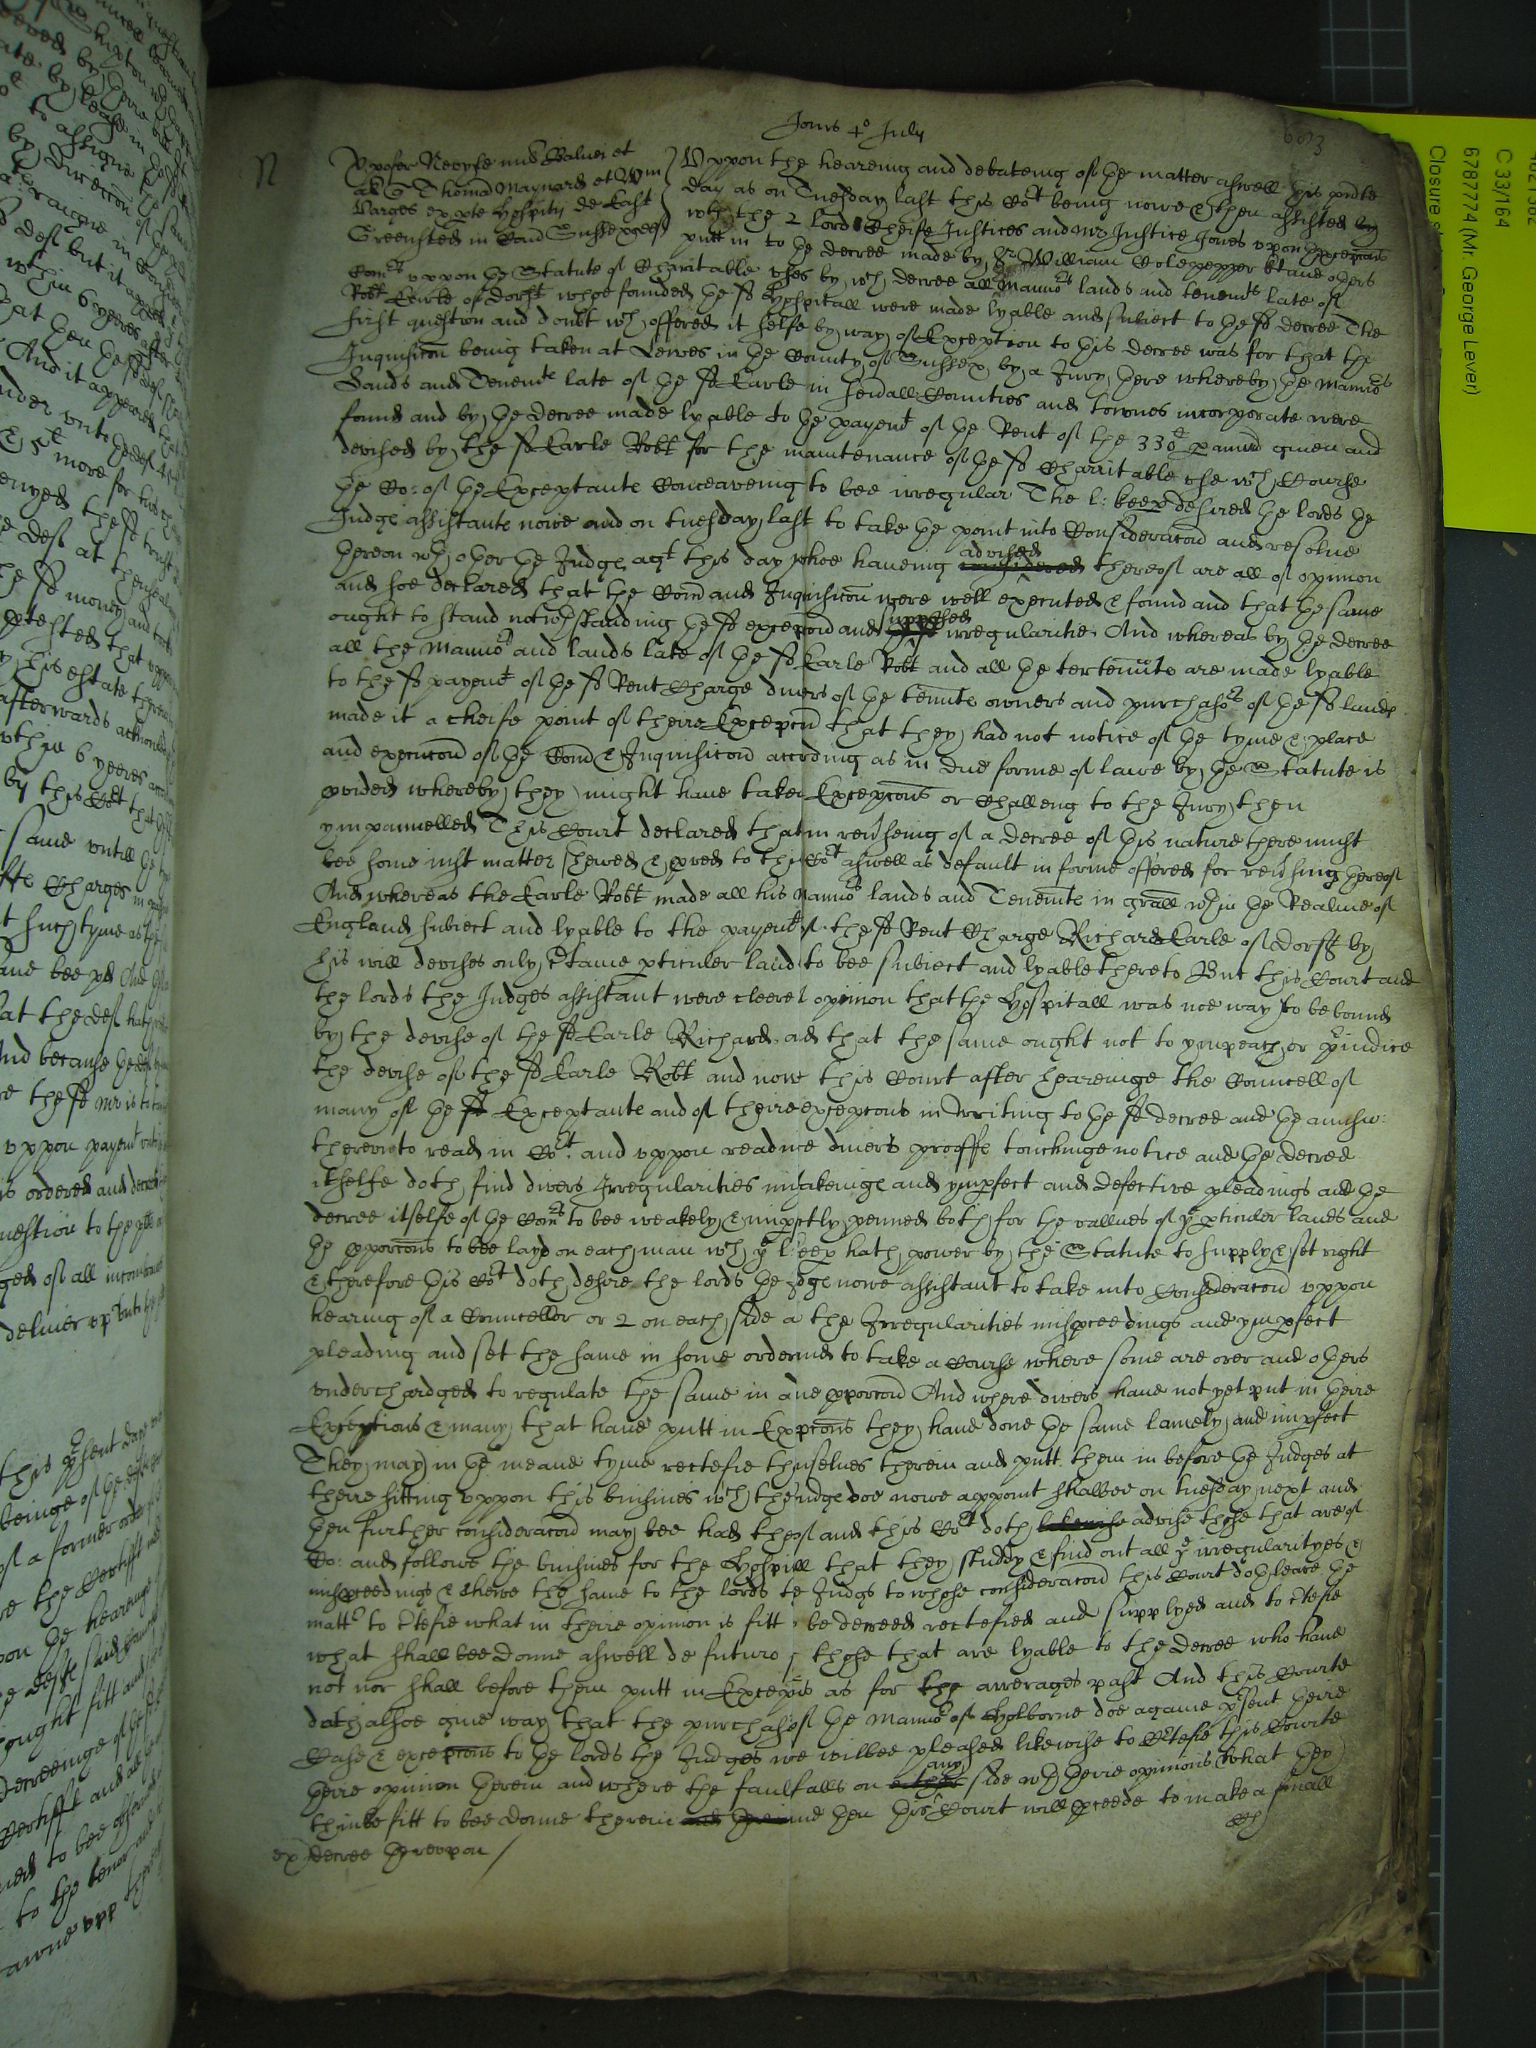 Jovis 4o July
603
N
Xpofer Nevyle miles Balnei et
al & Thomas Maynard et Wm
Barges ex pte Hospitij de East
Greensted in Com Sussex quer
Uppon the heareing and debateing of the matter aswell this pnte
day as on Tuesday last this Cort being nowe & then assisted by
wth the 2 lord Cheife Justices and mr Justice Jones upon Excepcons
putt in to the decree made by Sr William Colepepper Bt and others
Comrs uppon the Statute of Charitable uses by wch decree all Mannors lands and tenemts late of
Robt Earle of Dorst whoe founded the sd Hospitall were made lyable and subiect to the sd decree The
first question and doubt wch offered it selfe by way of Exception to this decree was for that the
Inquisicon being taken at Lewes in the County of Sussex by a Jury there whereby the Mannors
Lands and Tenemts late of the sd Earle in severall Counties and townes incorporate were
found and by the decree made lyable to the payemt of the Rent of the 330li p annu given and
devised by the sd Earle Robt for the maintenance of the sd Charritable use wch Course
the Co: of the Exceptante Conceaveing to bee irregular The l: keep desired the lords the
Judge assistante nowe and on tuesday last to take the point into Consideracon and resolve
thereon wch other the Judge agt this day whoe haveing considered advised thereof are all of opinion
and soe declared that the Com and Inquisicon were well executed & found and that the same
ought to stand notwthstanding the sd excepcon and supposed irregularitie And whereas by the decree
all the Mannors and lands late of the sd Earle Robt and all the tertennts are made lyable
to the sd payemt of the sd Rent Charge divers of the tennts owners and purchasors of the sd lands
made it a cheife point of theire Excepcon that they had not notice of the tyme & place
and execucon of the Com & Inquisicon according as in due forme of lawe by the Statute is
provided whereby they might have taken Excepcons or Challeng to the Jury then
ympannelled This Court declared that in reversing of a decree of this nature there must
bee some iust matter shewed & proved to this Cort aswell as default in forme offered for reversing thereof
And whereas the Earle Robt made all his mannors lands and Tenemts in grall wthin the Realme of
England subiect and lyable to the payemt of the sd Rent Charge Richard Earle of Dorst by
his will devises only Ctaine pticuler land to bee subiect and lyable thereto But this Court and
the lords the Judges assistant were cleere opinion that the Hospitall was noe way to be bound
by the devise of the sd Earle Richard and that the same ought not to ympeach or piudice
the devise of the sd Earle Robt and now this Court after heareinge the Councell of
many of the sd Exceptante and of theire excepcons in Writing to the sd decree and the answ:
thereunto read in Cort and uppon readine divers prooffe touchinge notice and the decree
itselfe doth find divers Irregularities in takeinge and ympfect and defective pleadings and the
decree itselfe of the Comrs to bee weakely & impfectly penned both for the vallues of ye pticuler lands and
the pporcons to bee layd on each man wch ye l: keep hath power by the Statute to supply & set right
& therefore this Cort doth desire the lords the Judge nowe assistant to take into Consideracon uppon
hearing of a Councellor or 2 on each side a the Irregularities mispceedings and ympfect
pleading and set the same in some order and to take a Course where some are over and others
undercharged to regulate the same in due pporcon And where divers have not yet put in theire
Exceptions & many that have putt in Expcons they have done the same lamely and impfect
They may in the meane tyme rectefie themselves therein and putt them in before the Judges at
theire sitting uppon this buisines wch the iudge doe nowe appoint shalbee on tuesday next and
then further consideracon may bee had therof and this Cort doth likewise advise those that are of
Co: and followe the buisines for the Hospitll that they studdy & find out all ye irregularityes &
mispceedings & shewe the same to the lords the Judgs to whose consideracon this Court doth leave the
mattr to Ctefie what in theire opinion is fitt be decreed rectefied and supplyed and to Ctefie
what shall bee donne aswell de futuro those that are lyable to the decree who have
not nor shall before them putt in Excepcons as for the arrerages past And this Courte
doth alsoe give way that the purchasr of the Mannor of Holborne doe againe psent theire
Case & excepcons to the lords the Judges we willbee pleased likewise to Ctefie this Courte
theire opinion therein and where the fault falls on either any side wth theire opinions what they
thinke fitt to bee donne therein and then this Court will pceede to make a finall
decree thereupon /
ex